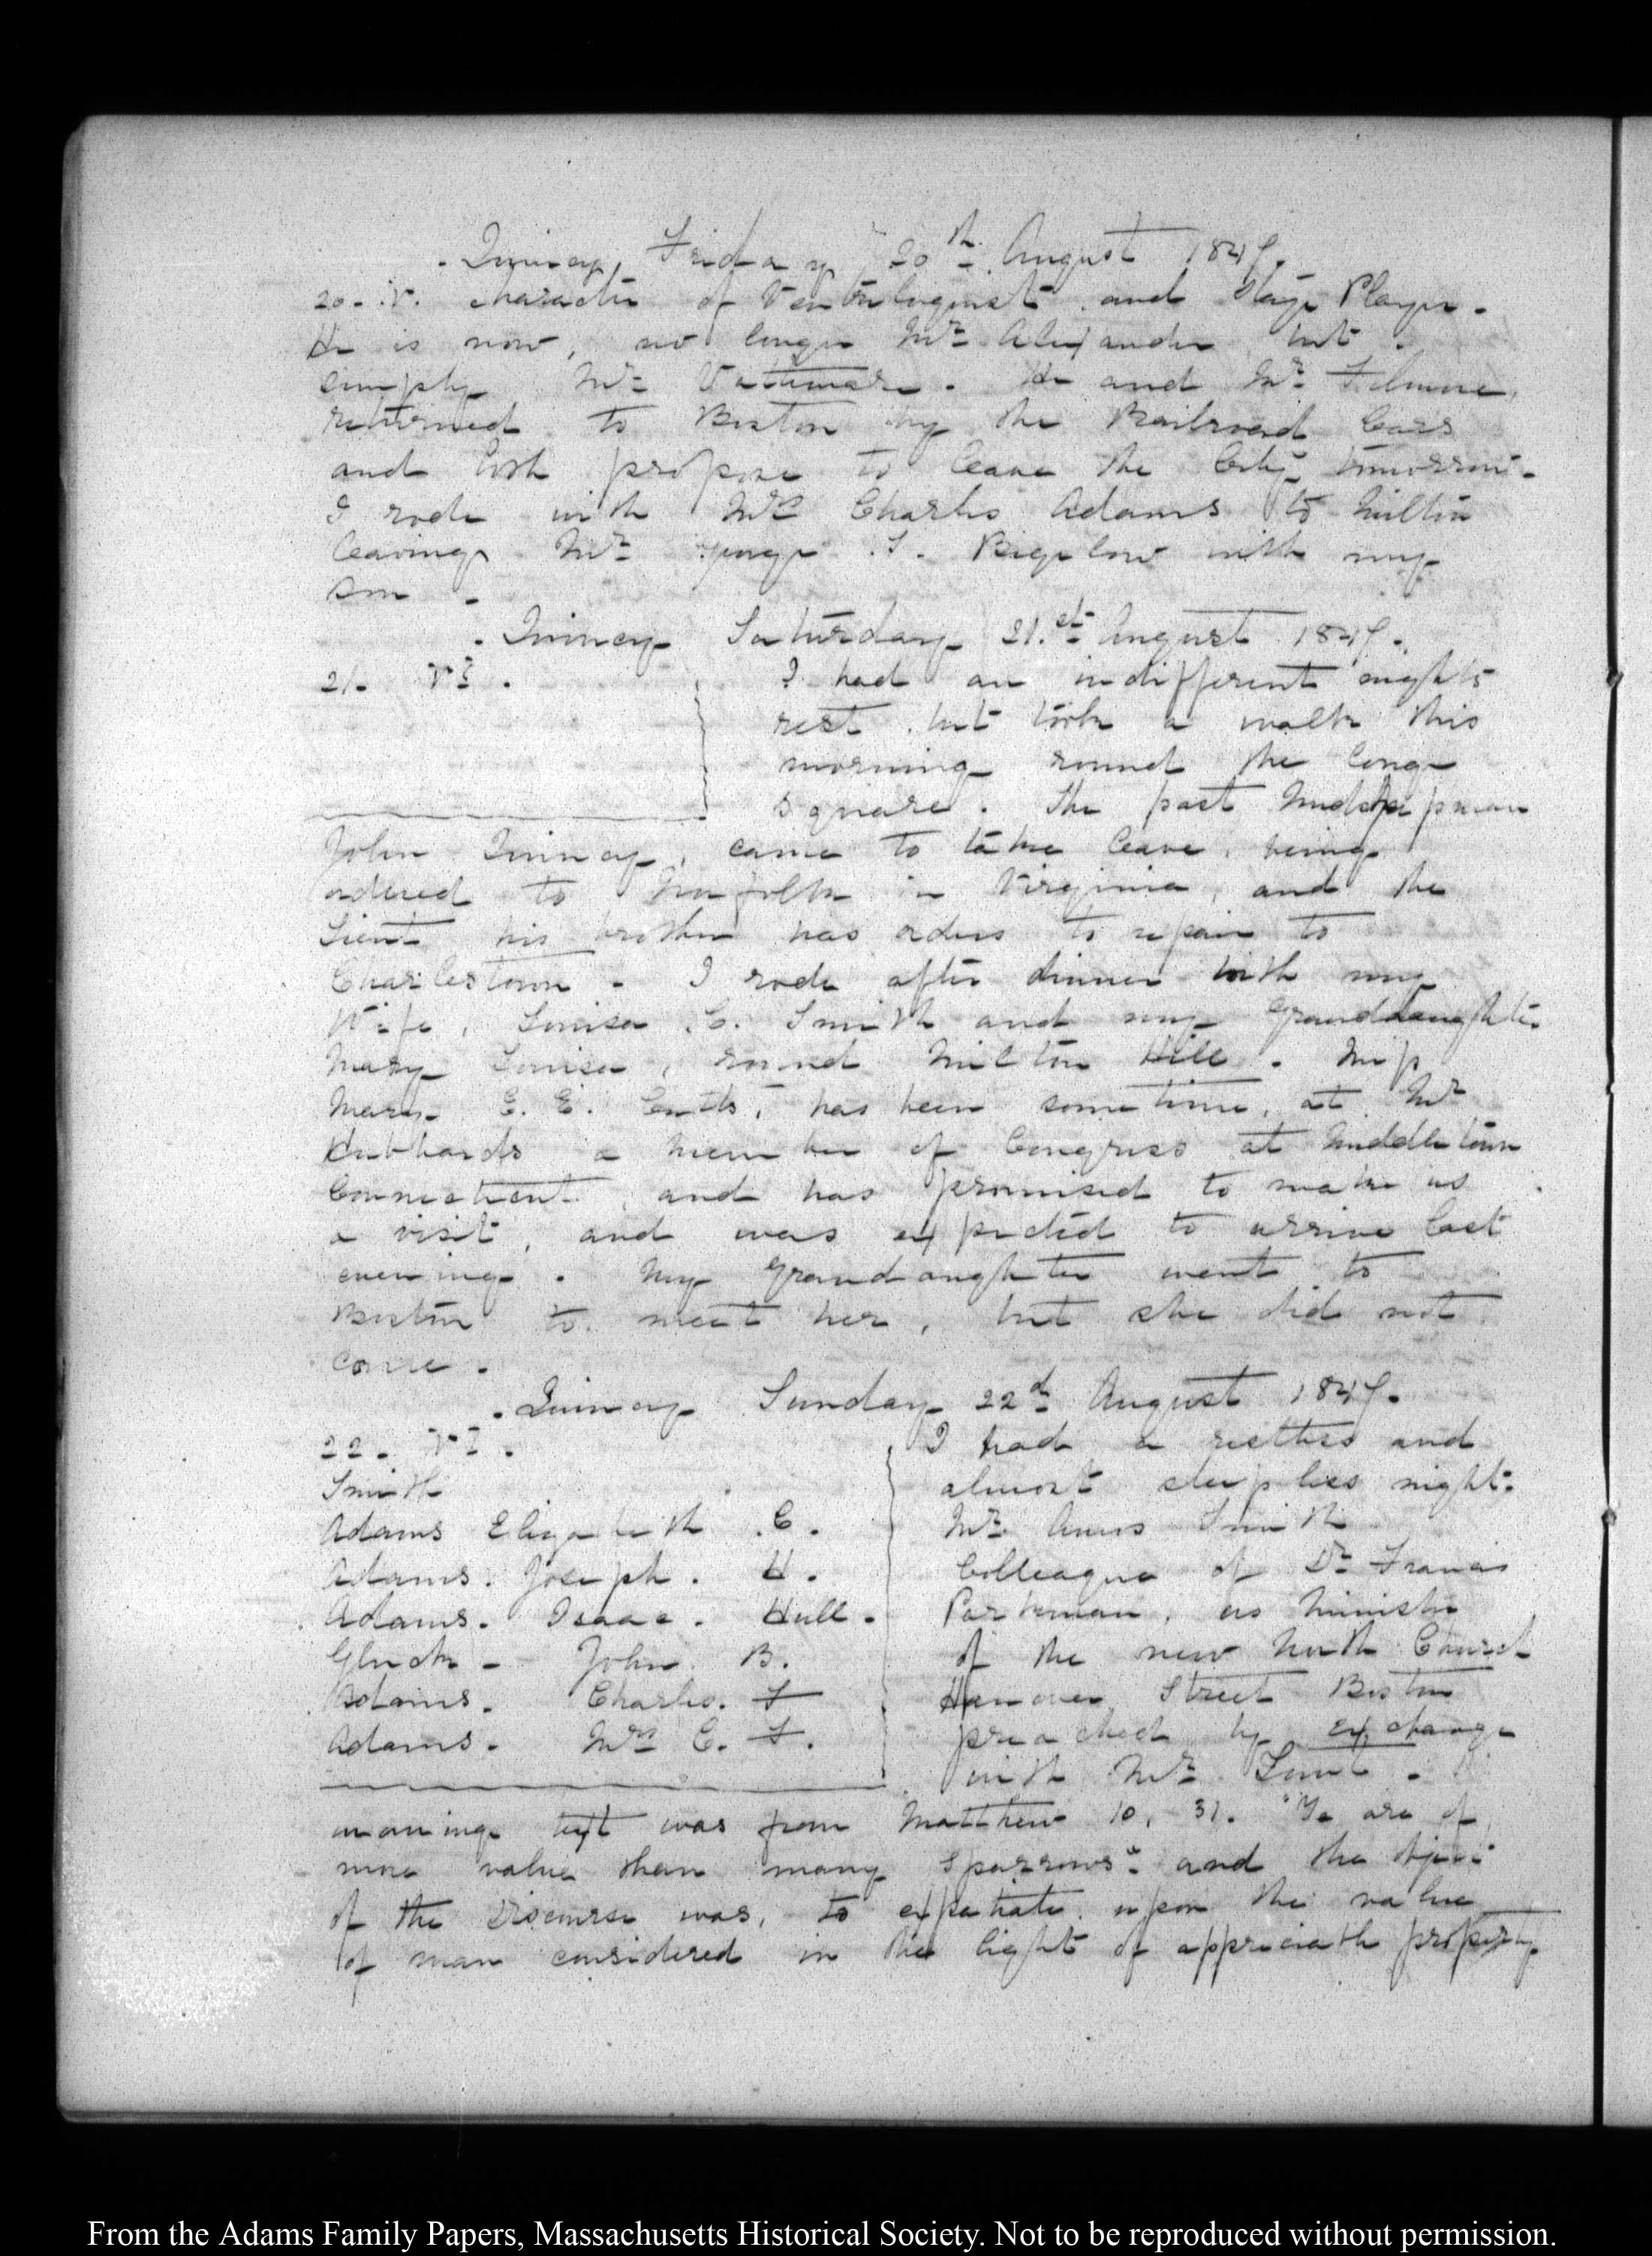 Quincy, Friday 20th August 1847.
20. V. character of Ventriloquist and Stage Player.
He is now, no longer Mr. Alexander but
simply Mr. Vattemare. He and Mr.
returned to Boston by the Railroad Cars
and both propose to leave the City tomorrow.
I rode with Mrs Charles Adams to Milton
leaving Mr. George T. Bigelow with my
son.
Quincy Saturday 21.st August 1847.
21.
I had an indifferent nights
rest but took a walk this
morning round the long
square. The past Midshipman
John Quincy, came to take leave, being
ordered to Norfolk in Virginia, and the
Lieut his brother has orders to repair to
Charlestown. I rode after dinner with my
Wife, Louisa C. Smith and my Granddaughter
Mary Louisa, round Milton Hill. Miss
Mary E. E. Cutts, has been sometime, at Mr
Hubbards a member of Congress at Middletown
Connecticut and has promised to make us
a visit, and was expected to arrive last
evening. My Grandaughter went to
Boston to meet her, but she did not
come.
Quincy Sunday 22d August 1847.
22.
Smith
Adams Elizabeth C.
Adams. Joseph. H.
Adams. Isaac. Hull.
John B.
Adams. Charles. F
Adams. Mrs C. F.
I had a restless and
almost sleepless night.
Mr. Amos Smith
Colleague of Dr Francis
Parkman, as Minister
of the new North Church
Hanover Street Boston
preached by exchange
with Mr. Lunt.
morning text was from Matthew 10, 31. "Ye are of
more value than many Sparrows" and the object
of the Discourse was, to expatiate upon the value
of man considered in the light of property